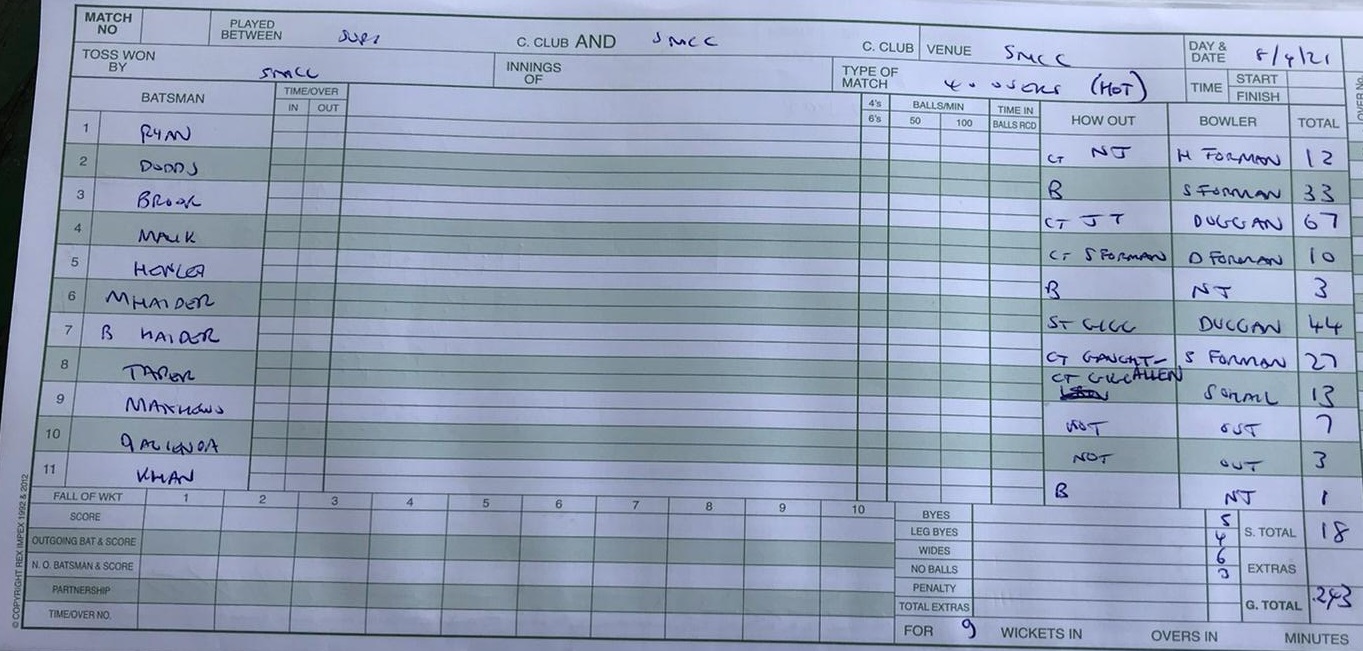 MATCH NO PLAYED BETWEEN C. CLUB AND SMCC C. CLUB VENUE SMCC DAY & DATE 8/4/21
TOSS WON BY SMCC INNINGS OF TYPE OF MATCH 40 (HOT) TIME START FINISH
BATSMAN TIME/OVER IN OUT 4's 6's BALLS/MIN 50 100 TIME IN BALLS RCD HOW OUT BOWLER TOTAL OVER No.
1 RYAN CT NJ H FORMAN 12
2 DODDS B S FORMAN 33
3 BROOK CT JT DUGGAN 67
4 MALIK CT S FORMAN D FORMAN 10
5 B NJ 3
6 M HAIDER ST GILL DUGGAN 44
7 B HAIDER CT S FORMAN 27
8 CT GILL ALLEN 13
9 NOT OUT 7
10 NOT OUT 3
11 KHAN B NJ 1
FALL OF WKT 1 2 3 4 5 6 7 8 9 10
SCORE
OUTGOING BAT & SCORE
N. O. BATSMAN & SCORE
PARTNERSHIP
TIME/OVER NO.
BYES 5 S. TOTAL 18
LEG BYES 4
WIDES 6 EXTRAS
NO BALLS 3
PENALTY
TOTAL EXTRAS G. TOTAL 243
FOR 9 WICKETS IN OVERS IN MINUTES
© COPYRIGHT REX IMPEX 1992 & 2012